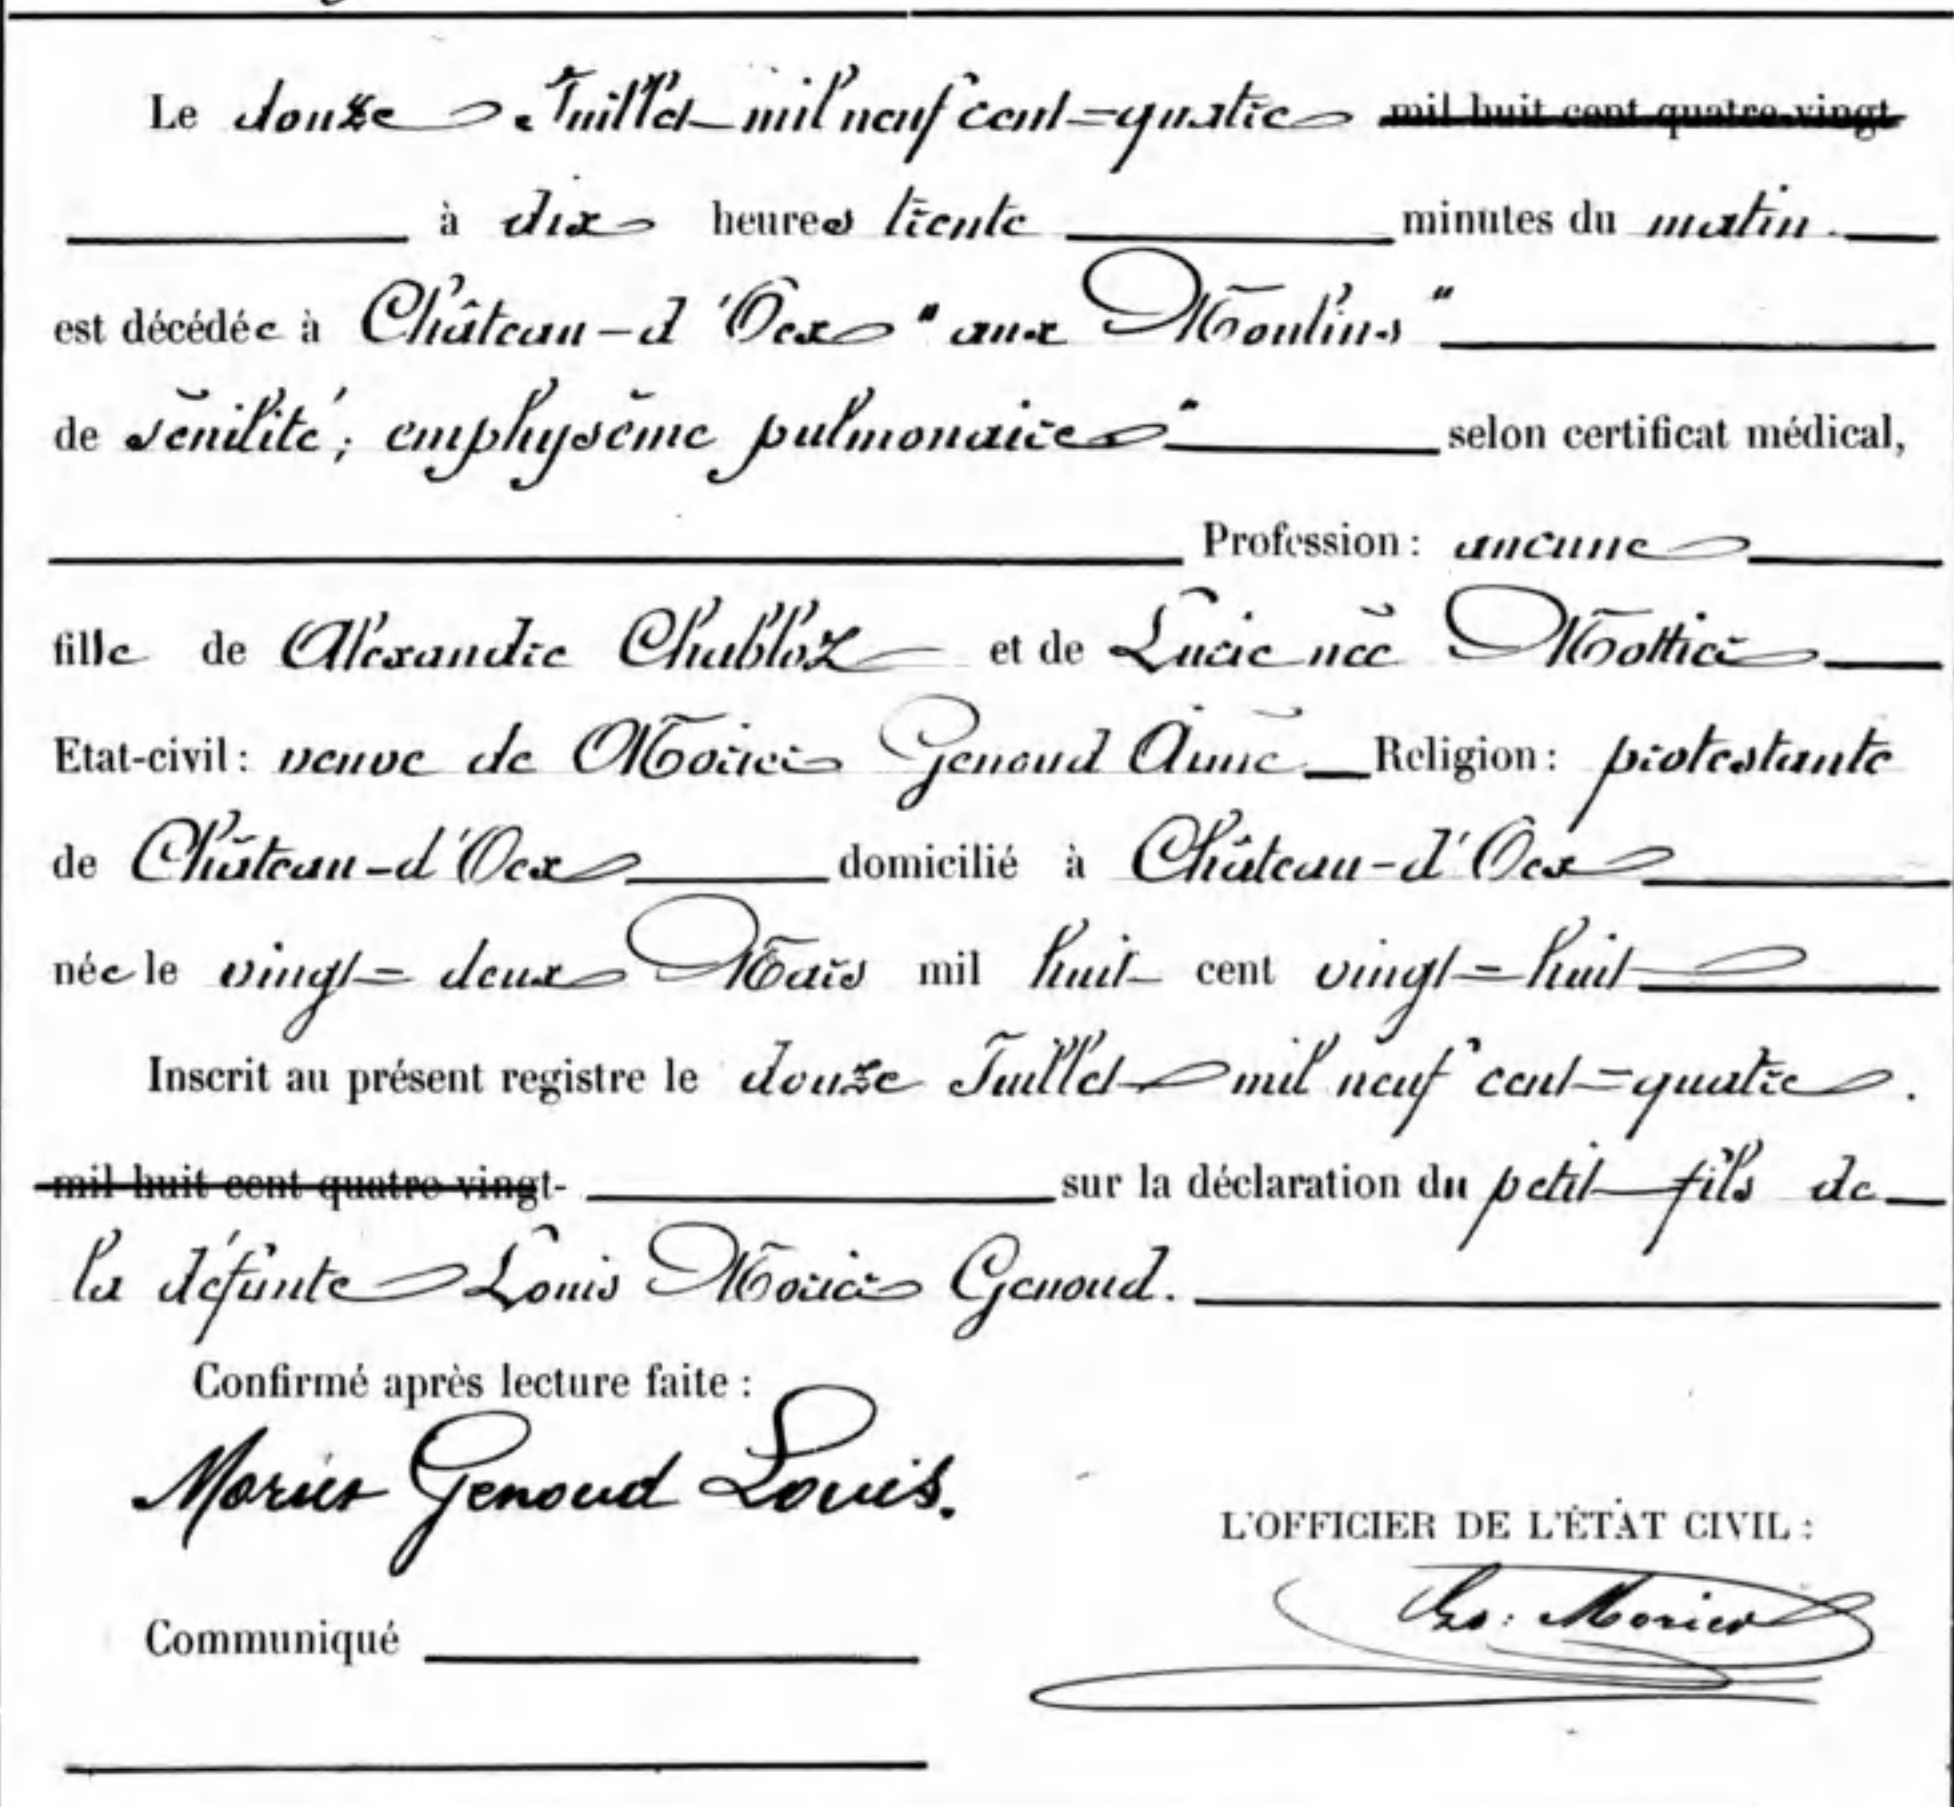 Le douze Juillet mil neuf cent-quatre mil huit cent quatre-vingt
à dix heures trente minutes du matin.
est décédée à Château-d'Oex "aux Moulins"
de sénilité; emphysème pulmonaire" selon certificat médical,
Profession: aucune
fille de Alexandre Chabloz et de Lucie née Mottier
Etat-civil: veuve de Morier Genoud Aimé Religion: protestante
de Château-d'Oex domicilié à Château-d'Oex
née le vingt-deux Mars mil huit cent vingt-huit
Inscrit au présent registre le douze Juillet mil neuf cent-quatre.
mil huit cent quatre-vingt- sur la déclaration du petit-fils de
la défunte Louis Morier Genoud.
Confirmé après lecture faite:
Morier Genoud Louis.
L'OFFICIER DE L'ÉTAT CIVIL:
Morier
Communiqué